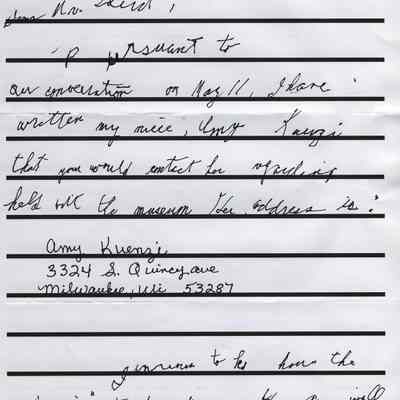 Dear Mr.
Pursuant to
our conversation on May 11, I have
written my niece, Amy Kuenzi
that you would contact her regarding
help with the museum Her address is:
Amy Kuenzi
3324 S. Quincy ave
Milwaukee, Wi 53287
to have the